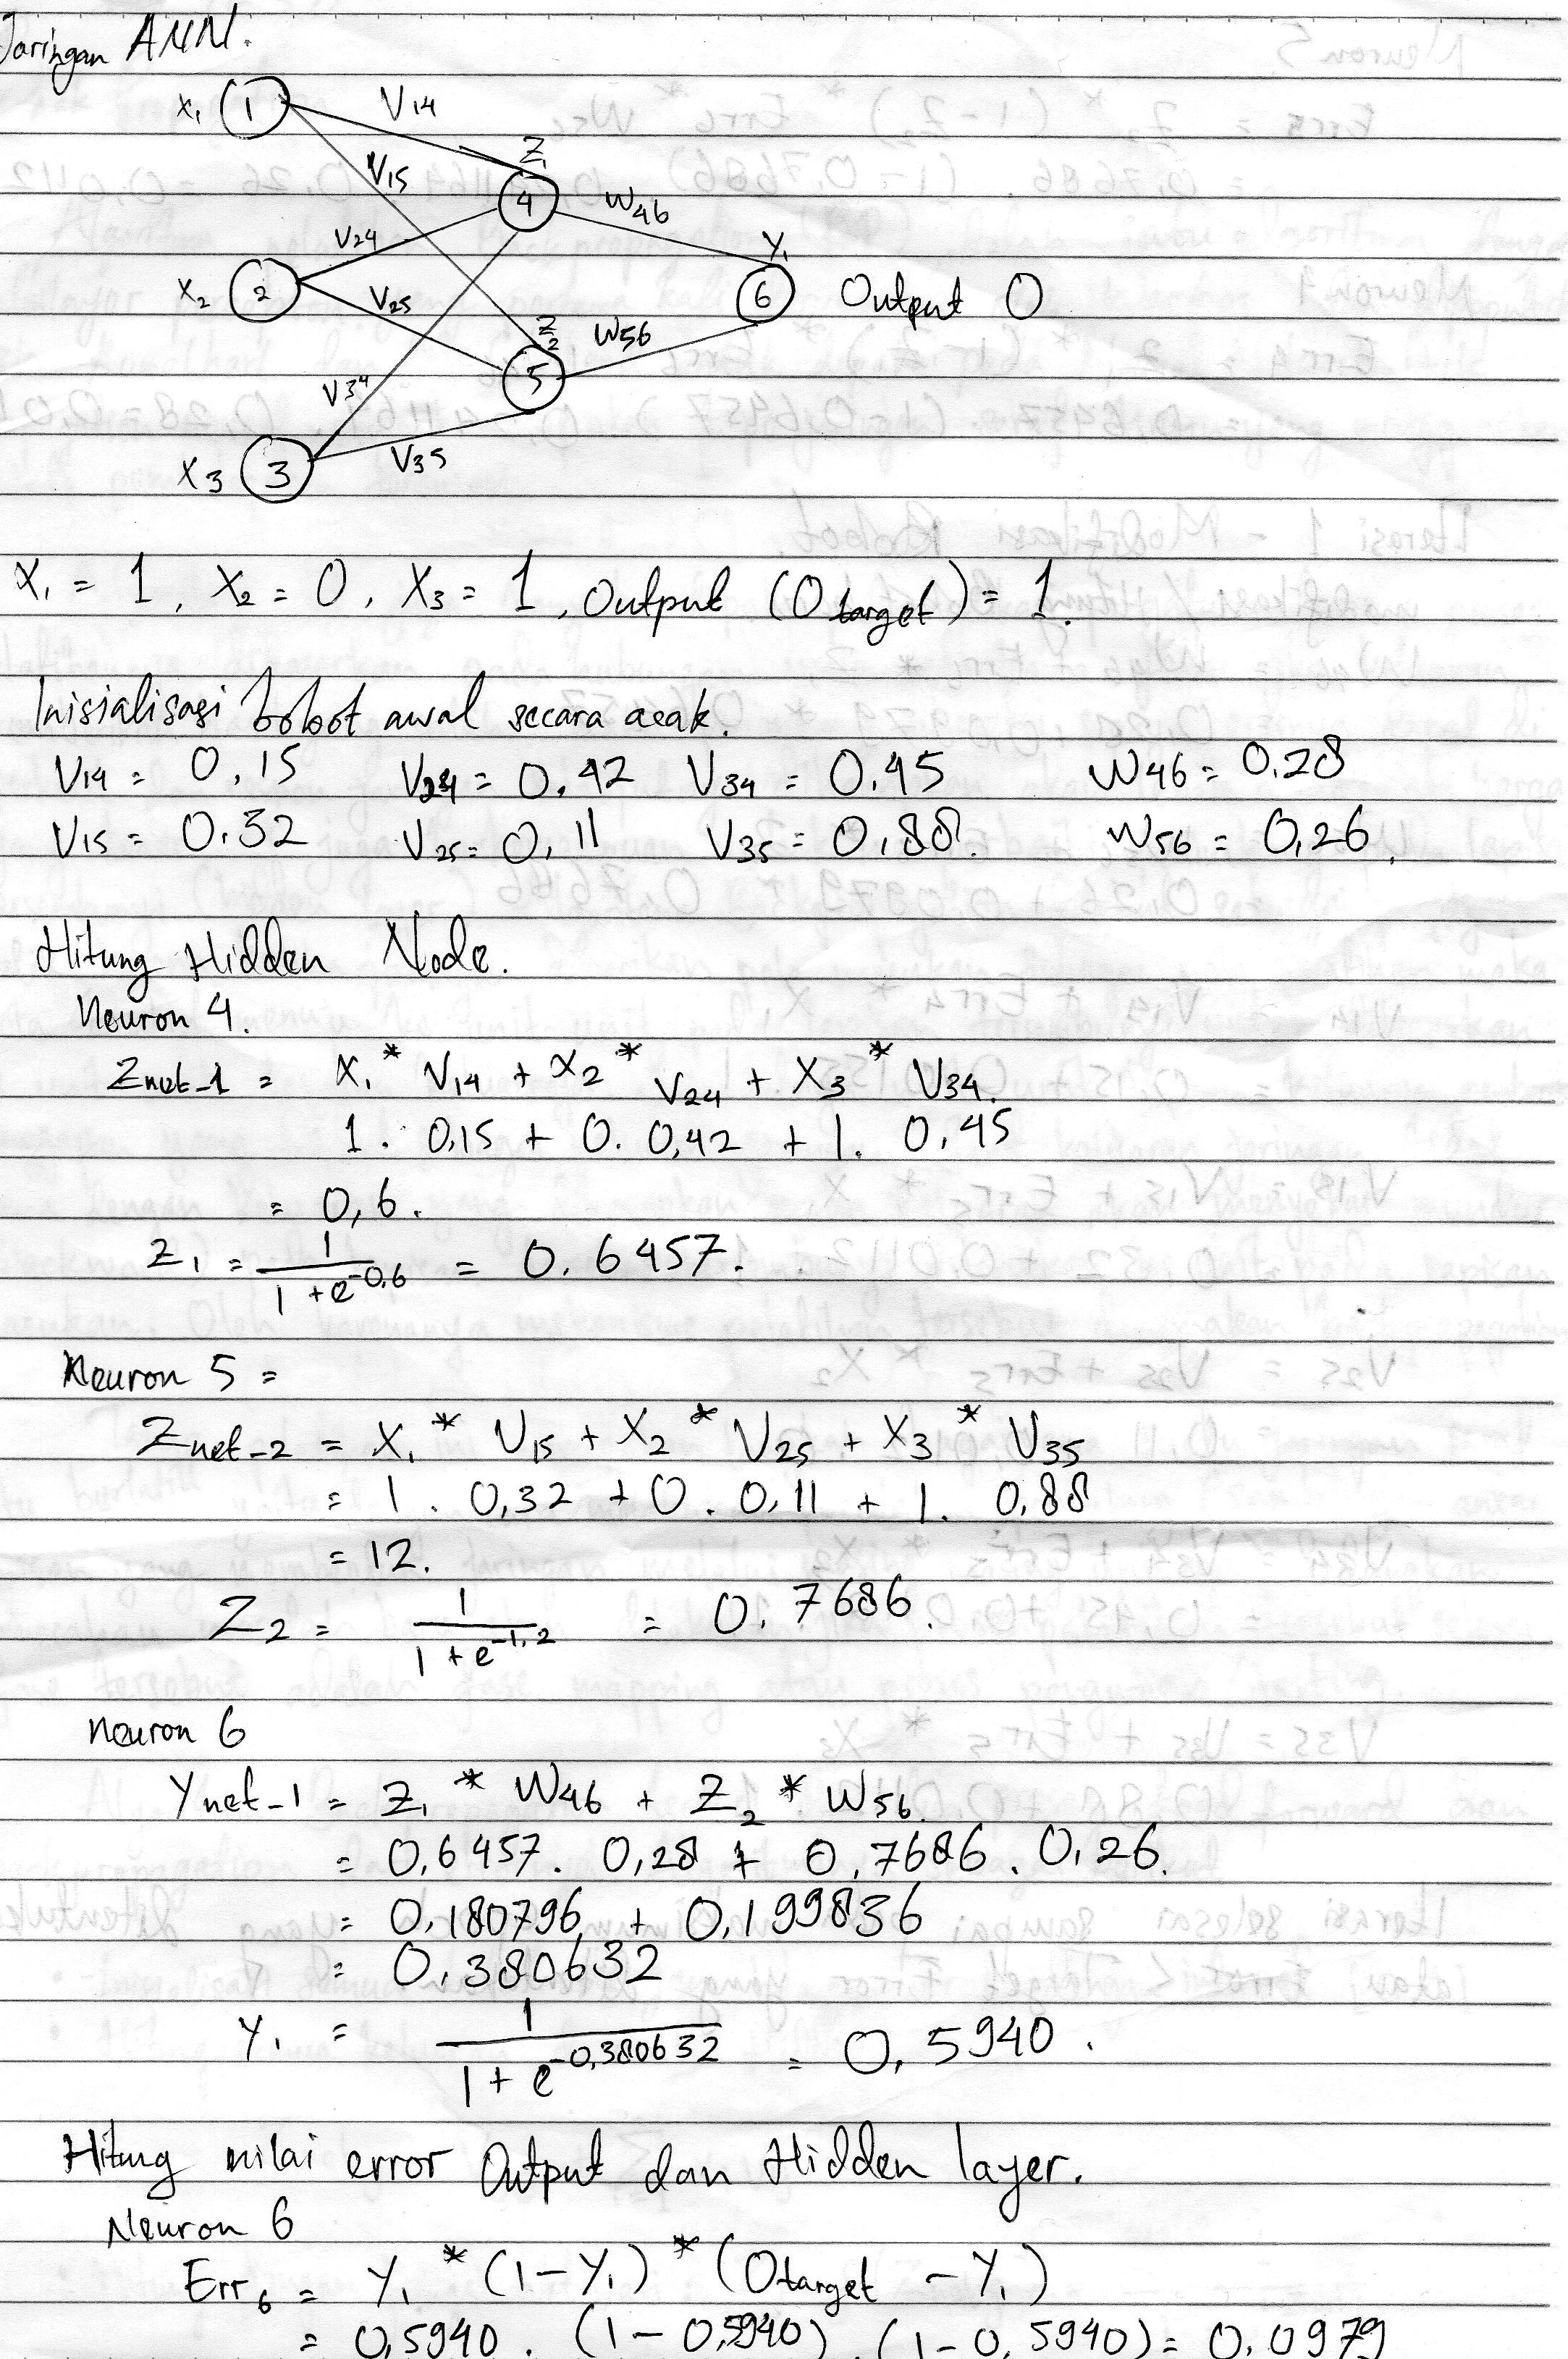 Jaringan ANN.
X1 1 V14
V15 Z1
4 W46
V24 Y1
X2 2 V25 6 Output O
Z2 W56
V34 5
X3 3 V35
X1 = 1, X2 = 0, X3 = 1, Output (Otarget) = 1.
Inisialisasi bobot awal secara acak.
V14 = 0,15 V24 = 0,42 V34 = 0,45 W46 = 0,28
V15 = 0,32 V25 = 0,11 V35 = 0,88. W56 = 0,26.
Hitung Hidden Node.
Neuron 4.
Znet-1 = X1 * V14 + X2 * V24 + X3 * V34.
1. 0,15 + 0. 0,42 + 1. 0,45
= 0,6.
Z1 = 1 / (1 + e^-0,6) = 0.6457.
Neuron 5 =
Znet-2 = X1 * V15 + X2 * V25 + X3 * V35
= 1 . 0,32 + 0 . 0,11 + 1. 0,88
= 12.
Z2 = 1 / (1 + e^-1,2) = 0.7686.
Neuron 6
Ynet-1 = Z1 * W46 + Z2 * W56.
= 0,6457. 0,28 + 0,7686. 0,26.
= 0,180796 + 0,199836
= 0,380632
Y1 = 1 / (1 + e^-0,380632) = 0,5940.
Hitung nilai error Output dan Hidden layer.
Neuron 6
Err6 = Y1 * (1-Y1) * (Otarget - Y1)
= 0,5940 . (1 - 0,5940) . (1-0,5940) = 0,0979